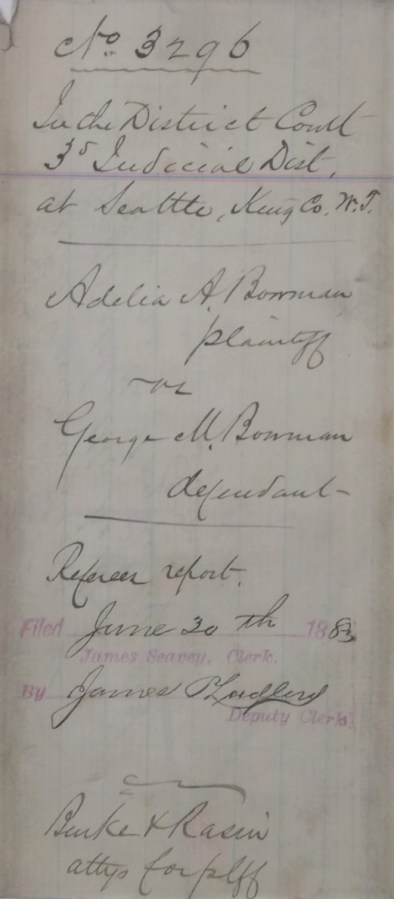 No. 3296
In the District Court
3d Judicial Dist,
at Seattle, King Co. W.T.
Adelia A. Bowman
plaintiff
vs
George M. Bowman
defendant
Referees report.
Filed June 30th 1883
James Seavey, Clerk.
By James P. Ludlow
Deputy Clerk
Burke & Rasin
attys for plff